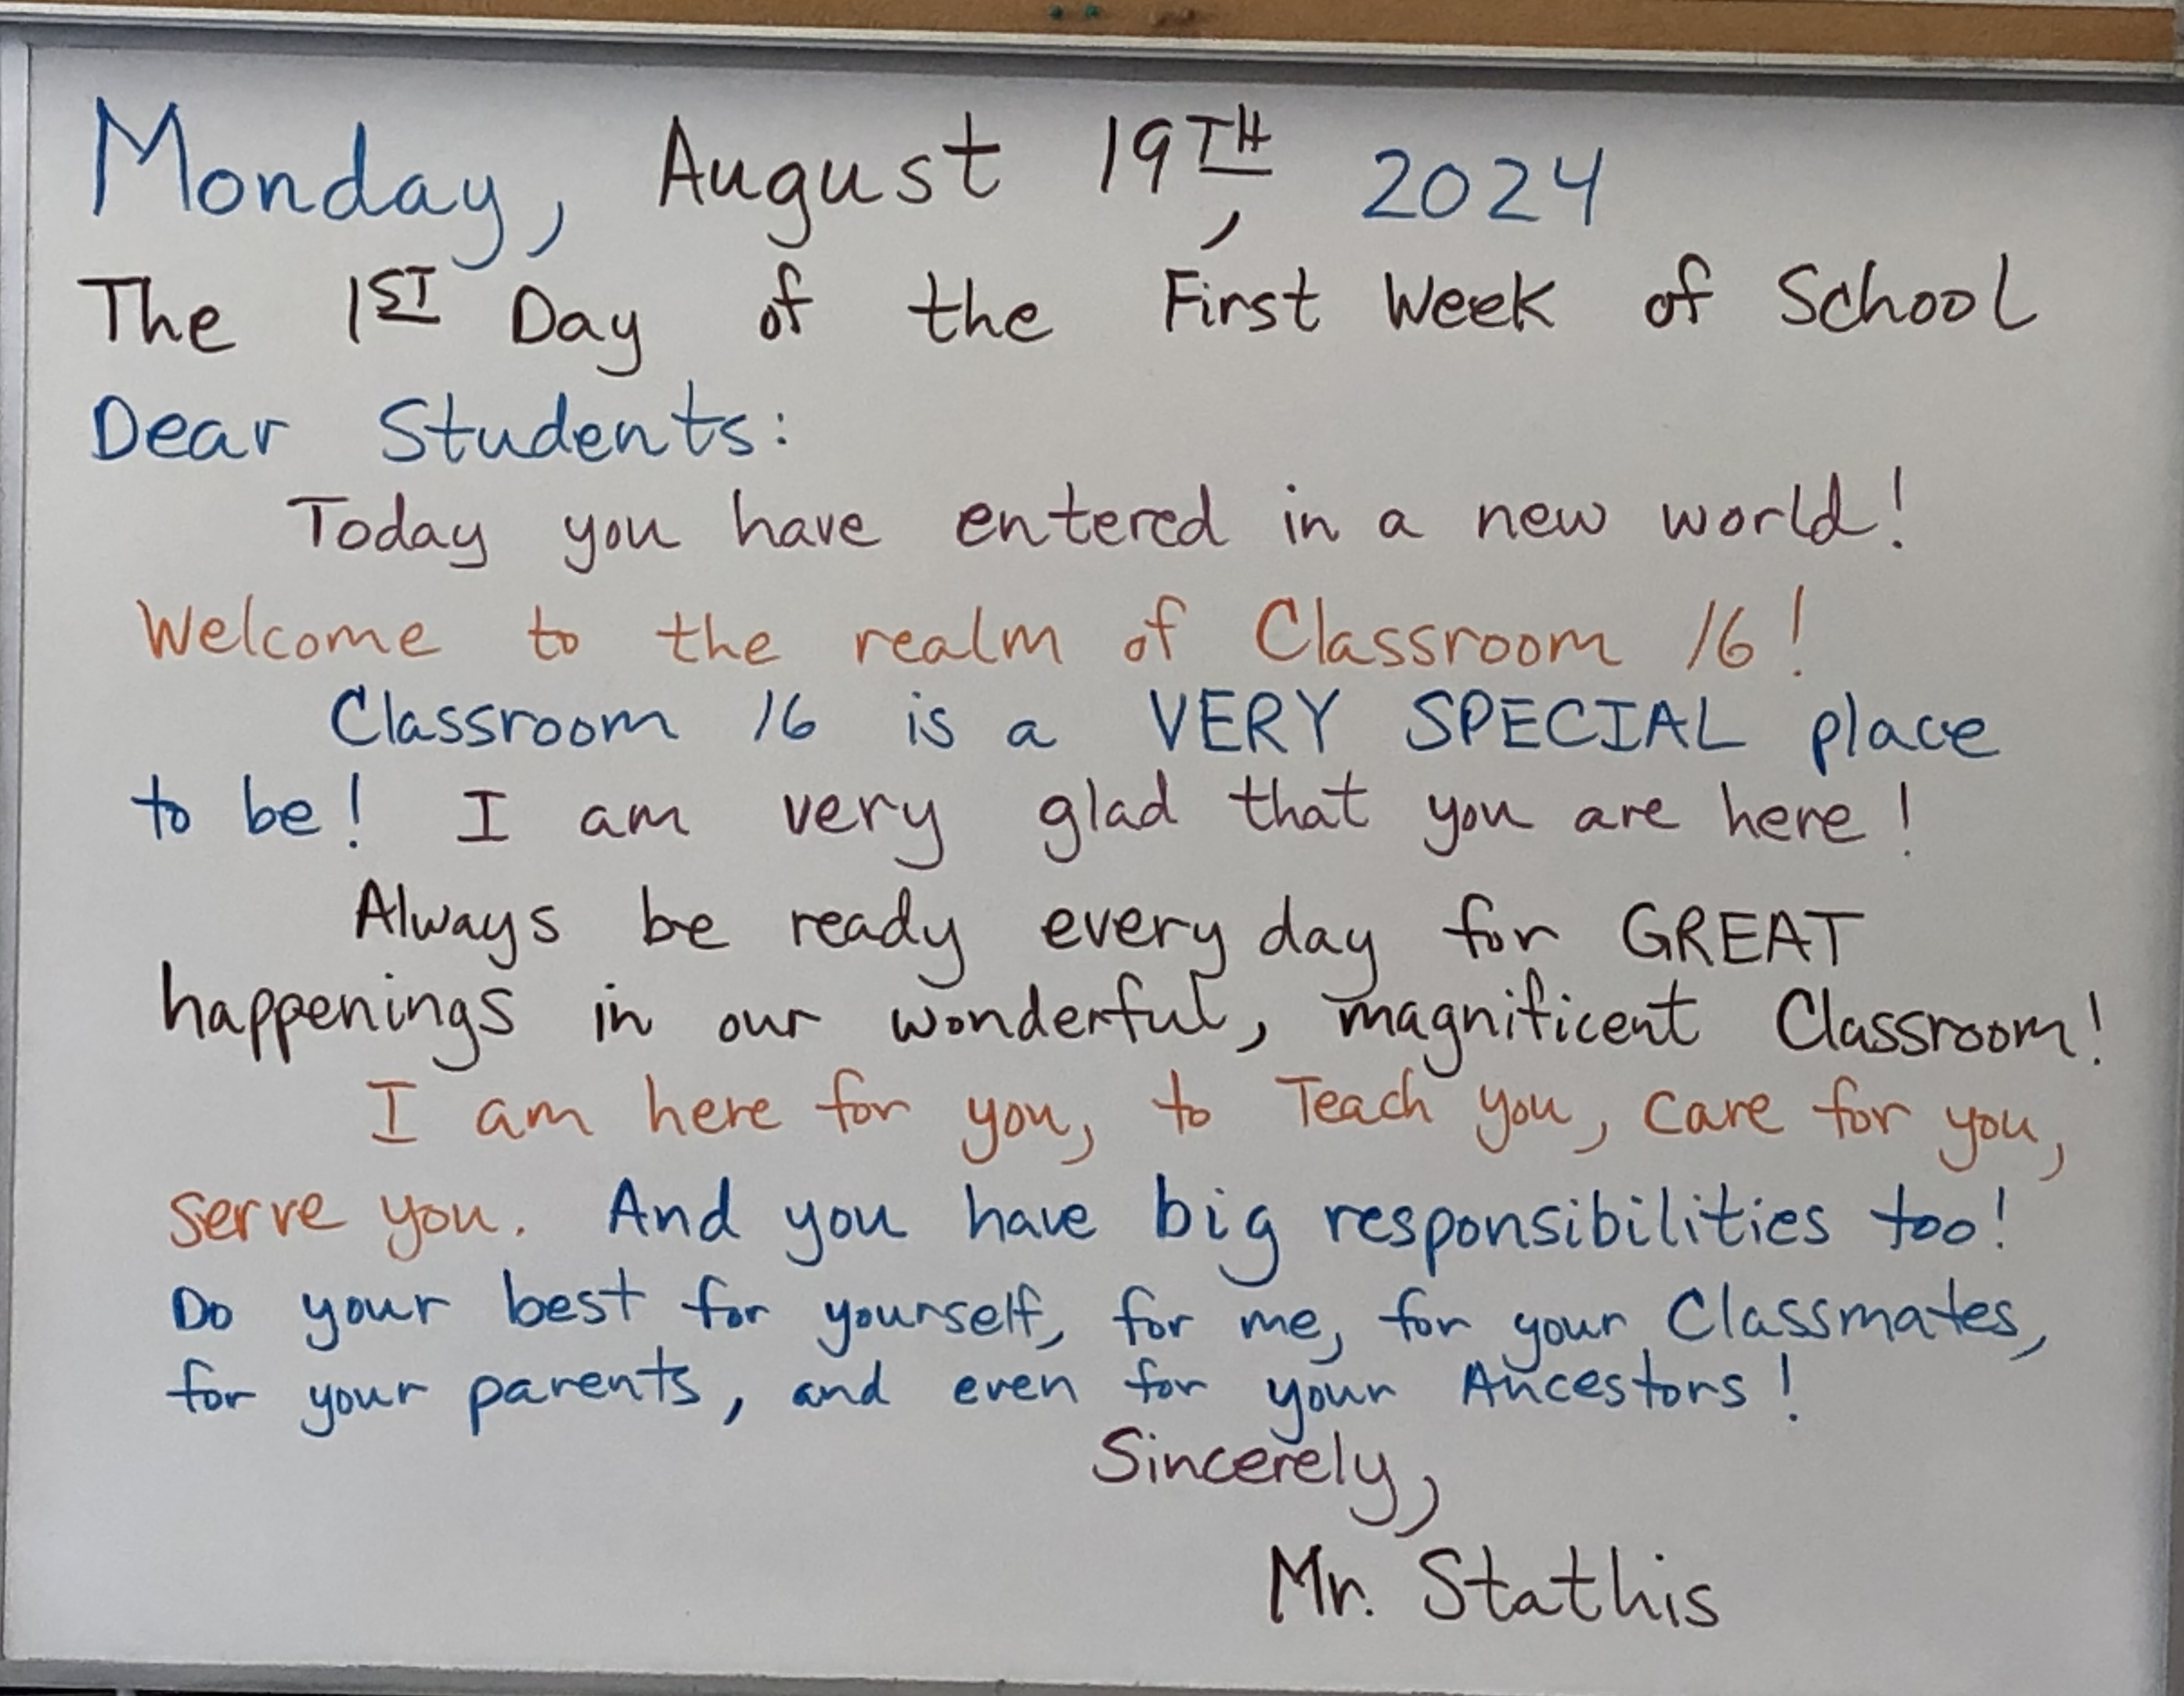 Monday, August 19TH, 2024
The 1ST Day of the First Week of School
Dear Students:
Today you have entered in a new world!
Welcome to the realm of Classroom 16!
Classroom 16 is a VERY SPECIAL place
to be! I am very glad that you are here!
Always be ready every day for GREAT
happenings in our wonderful, magnificent Classroom!
I am here for you, to Teach you, care for you,
serve you. And you have big responsibilities too!
Do your best for yourself, for me, for your Classmates,
for your parents, and even for your Ancestors!
Sincerely,
Mr. Stathis